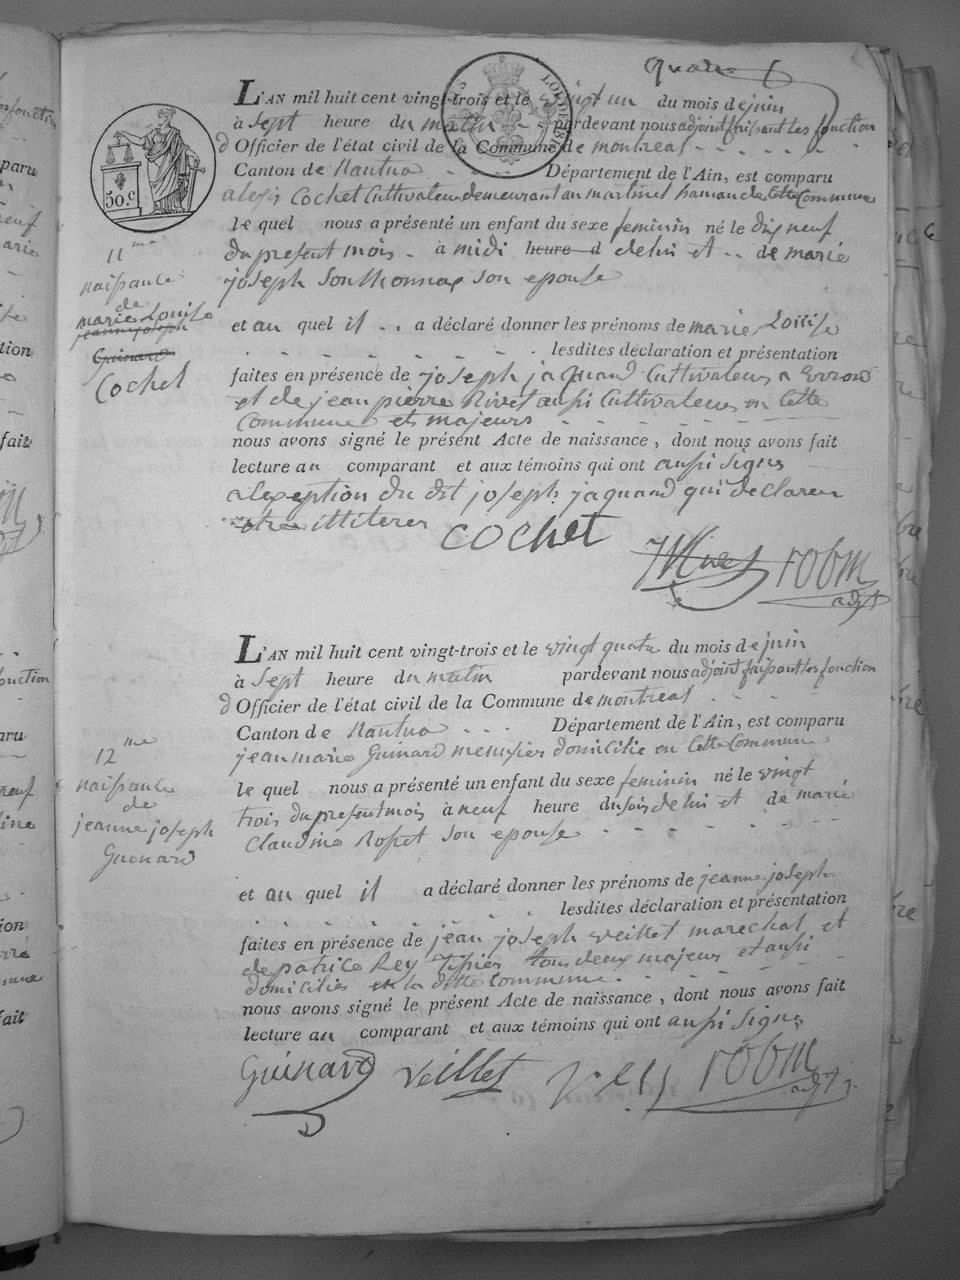 quatre 6
L'AN mil huit cent vingt-trois et le vingt un du mois de juin
à Sept heure du matin pardevant nous adjoint faisant les fonction
d Officier de l'état civil de la Commune de montreal
Canton de Nantua Département de l'Ain, est comparu
alexis Cochet Cultivateur demeurant au martinet hamau de Cette Commune
le quel nous a présenté un enfant du sexe feminin né le dix neuf
du present mois à midi heure d de lui et de marie
joseph Sonthonnax son epouse
et au quel il a déclaré donner les prénoms de marie Louise
lesdites déclaration et présentation
faites en présence de joseph jaquand Cultivateur a
et de jean pierre Rivet aussi Cultivateur en Cette
Commune et majeurs
nous avons signé le présent Acte de naissance, dont nous avons fait
lecture au comparant et aux témoins qui ont aussi Signe
a lexeption du dit joseph jaquand qui declaren
etre illiteres
cochet
JP Rivet robin
adjt
50.c
11me
naissance
de
marie Louise
jeanne joseph
Guinard
Cochet
L'AN mil huit cent vingt-trois et le vingt quatre du mois de juin
à Sept heure du matin pardevant nous adjoint faisant les fonction
d Officier de l'état civil de la Commune de montreal
Canton de Nantua Département de l'Ain, est comparu
jean marie Guinard menusier domicilié en Cette Commune
le quel nous a présenté un enfant du sexe feminin né le vingt
trois du present mois à neuf heure du soir de lui et de marie
Claudine Rosset son epouse
et au quel il a déclaré donner les prénoms de jeanne joseph
lesdites déclaration et présentation
faites en présence de jean joseph veillet marechal et
de patrice Rey tissier tous deux majeurs et aussi
domicilies en la ditte Commune
nous avons signé le présent Acte de naissance, dont nous avons fait
lecture au comparant et aux témoins qui ont aussi Signe
Guinard veillet Rey robin
adjt
12me
naissance
de
jeanne joseph
Guenard